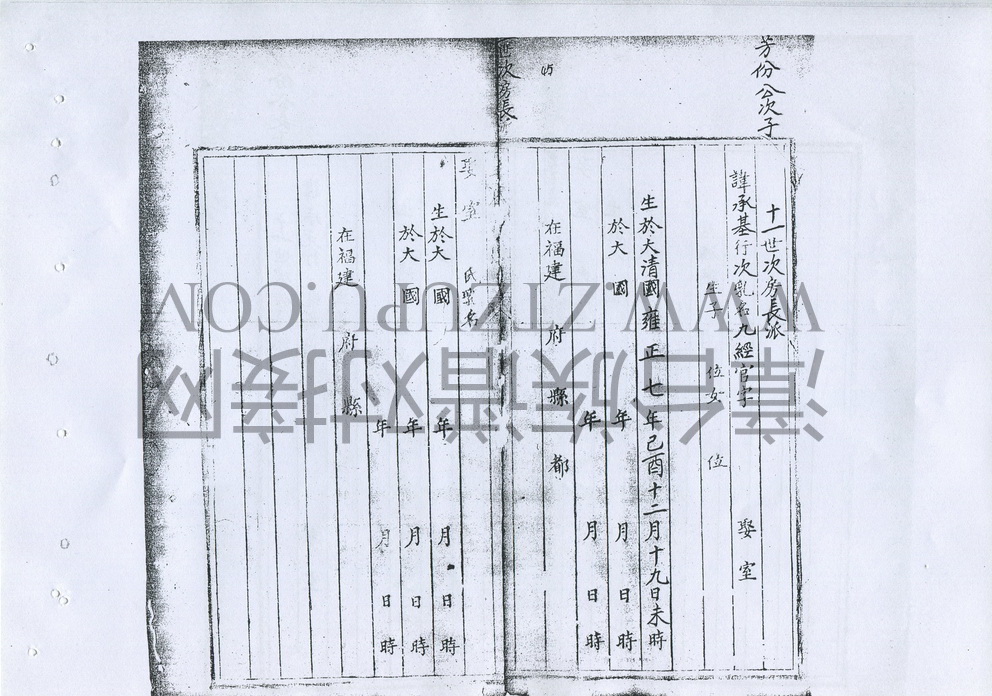 芳份公次子
十一世次房長派
諱承基行次乳名九經官字 娶室
生子 位女 位
生於大清國雍正七年己酉十二月十九日未時
於大 國 年 月 日 時
年 月 日 時
在福建 府 縣 都
世次房長
娶室 氏
生於大 國 年 月 日 時
於大 國 年 月 日 時
年 月 日 時
在福建 府 縣
WWW.ZTZUPU.COM
漳台族谱对接网